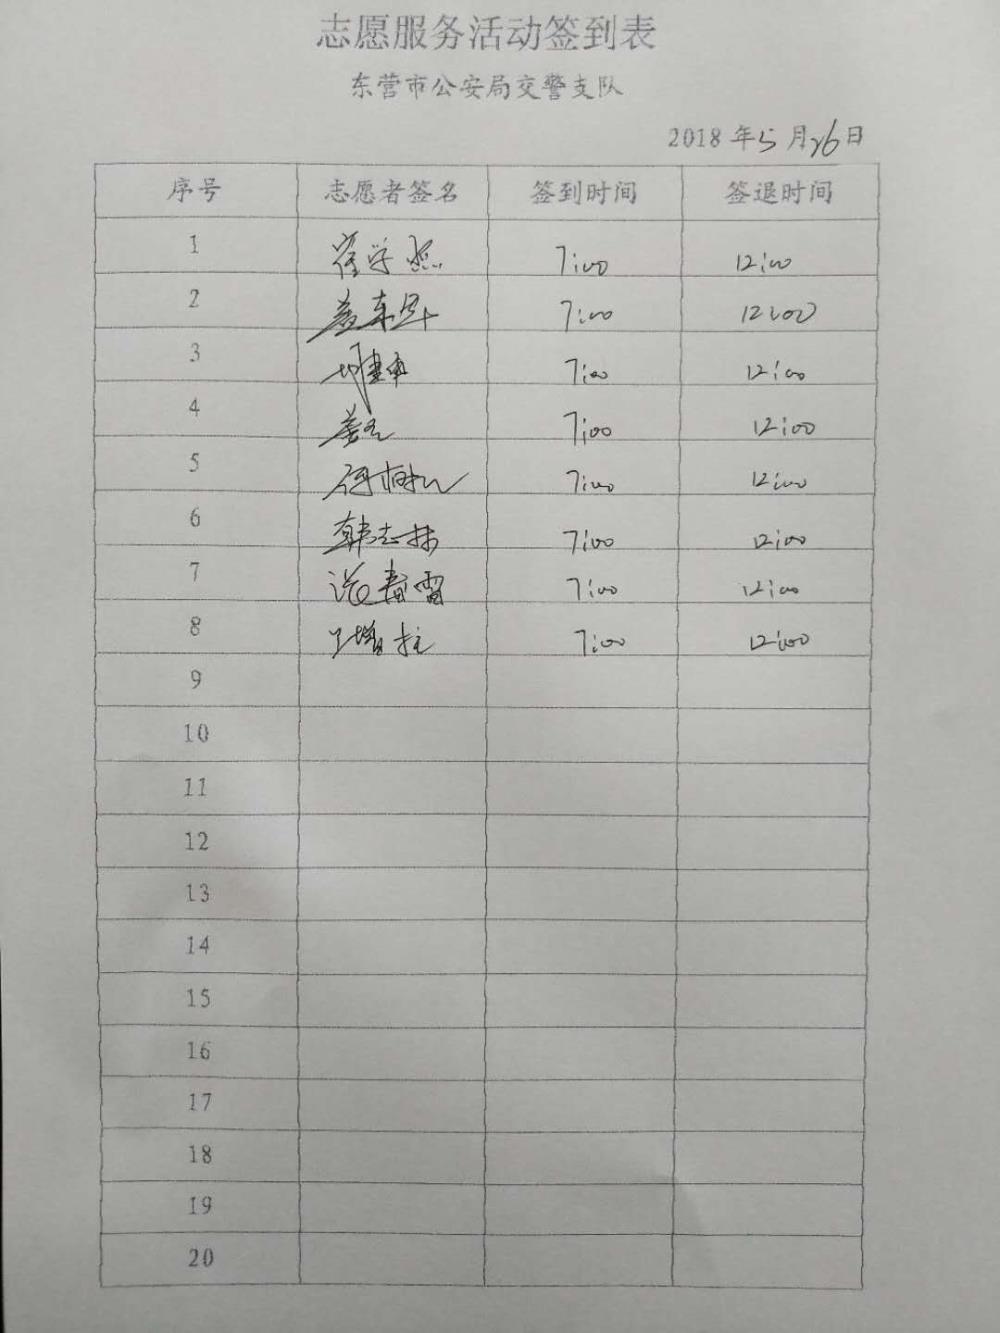 志愿服务活动签到表
东营市公安局交警支队
2018年5月26日
序号 志愿者签名 签到时间 签退时间
1 崔学 7:00 12:00
2 7:00 12:00
3 7:00 12:00
4 7:00 12:00
5 7:00 12:00
6 韩志 7:00 12:00
7 春雷 7:00 12:00
8 增柱 7:00 12:00
9
10
11
12
13
14
15
16
17
18
19
20